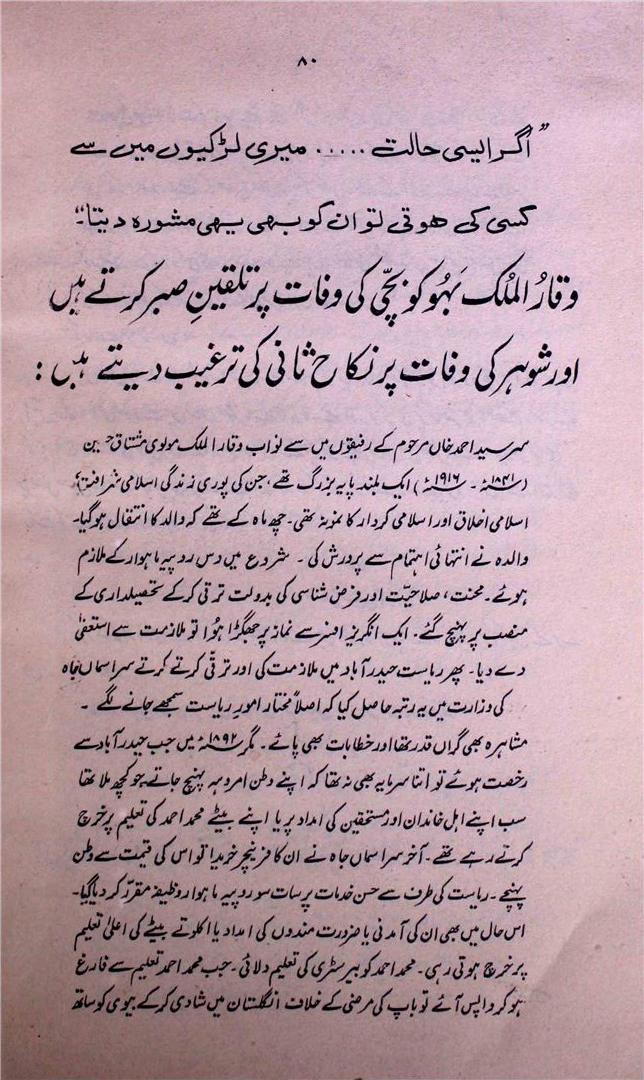 ۸۰
"اگر ایسی حالت ..... میری لڑکیوں میں سے
کسی کی ہوتی تو ان کو بھی یہی مشورہ دیتا"۔
وقارُ الملک بَہُو کو بچّی کی وفات پر تلقینِ صبر کرتے ہیں
اور شوہر کی وفات پر نکاح ثانی کی ترغیب دیتے ہیں :
سرسید احمد خاں مرحوم کے رفیقوں میں سے نواب وقار الملک مولوی مشتاق حسین
(۱۸۴۱ء ۔ ۱۹۱۶ء) ایک بلند پایہ بزرگ تھے، جن کی پوری زندگی اسلامی شرافت،
اسلامی اخلاق اور اسلامی کردار کا نمونہ تھی۔ چھ ماہ کے تھے کہ والد کا انتقال ہوگیا۔
والدہ نے انتہائی اہتمام سے پرورش کی ۔ شروع میں دس روپیہ ماہوار کے ملازم
ہوئے۔ محنت، صلاحیّت اور فرض شناسی کی بدولت ترقی کرکے تحصیلداری کے
منصب پر پہنچ گئے۔ ایک انگریز افسر سے نماز پر جھگڑا ہُوا تو ملازمت سے استعفیٰ
دے دیا۔ پھر ریاست حیدرآباد میں ملازمت کی اور ترقّی کرتے کرتے سر آسماں جاہ
کی وزارت میں یہ رتبہ حاصل کیا کہ اصلاً مختار امورِ ریاست سمجھے جانے لگے ۔
مشاہرہ بھی گراں قدر تھا اور خطابات بھی پائے۔ مگر ۱۸۹۲ء میں جب حیدرآباد سے
رخصت ہوئے تو اتنا سرمایہ بھی نہ تھا کہ اپنے وطن امروہہ پہنچ جاتے۔ جو کچھ ملا تھا
سب اپنے اہل خاندان اور مستحقین کی امداد پر یا اپنے بیٹے محمد احمد کی تعلیم پر خرچ
کرتے رہے تھے۔ آخر سر آسماں جاہ نے ان کا فرنیچر خریدا تو اس کی قیمت سے وطن
پہنچے۔ ریاست کی طرف سے حسن خدمات پر سات سو روپیہ ماہوار وظیفہ مقرّر کر دیا گیا۔
اس حال میں بھی ان کی آمدنی یا ضرورت مندوں کی امداد یا اکلوتے بیٹے کی اعلیٰ تعلیم
پر خرچ ہوتی رہی۔ محمد احمد کو بیرسٹری کی تعلیم دلائی۔ جب محمد احمد تعلیم سے فارغ
ہو کر واپس آئے تو باپ کی مرضی کے خلاف انگلستان میں شادی کرکے بیوی کو ساتھ